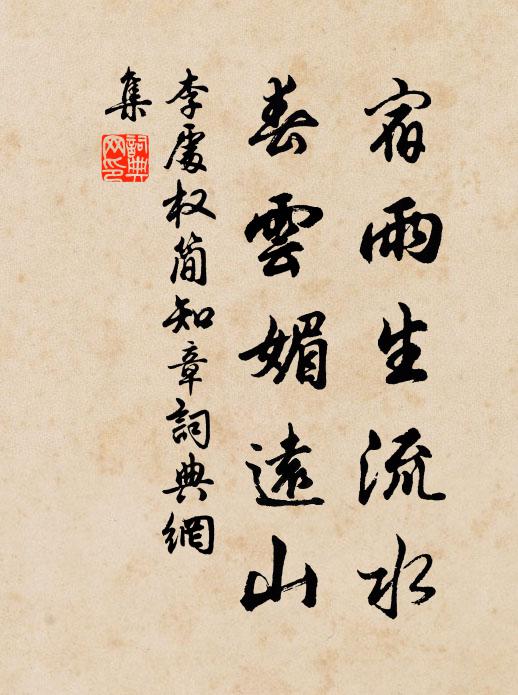 宿雨生流水
春雲媚遠山
李處权簡知章詞典網
集
詞典
网印